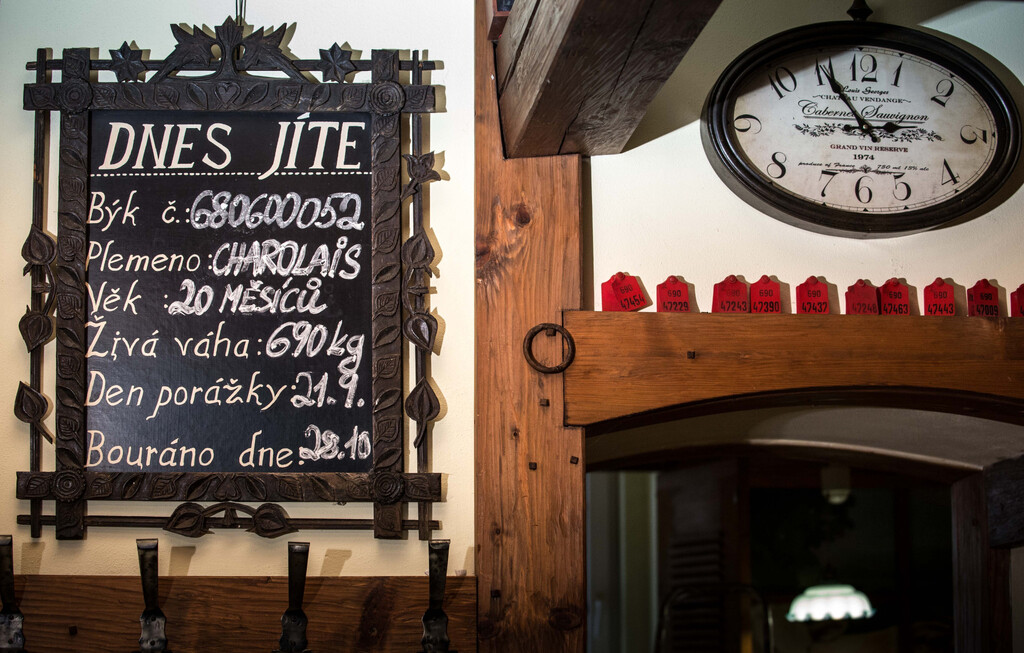 DNES JÍTE
Býk č.: 680600052
Plemeno: CHAROLAIS
Věk : 20 MĚSÍCŮ
Živá váha: 690 kg
Den porážky: 21.9.
Bouráno dne: 28.10
12
1
2
3
4
5
6
7
8
9
10
11
Louis Georges
"CHATEAU VENDANGE"
Cabernet Sauvignon
GRAND VIN RESERVE
1974
produce of France
750 ml
690
47454
690
47229
690
47243
690
47390
690
47437
690
690
47463
690
47443
690